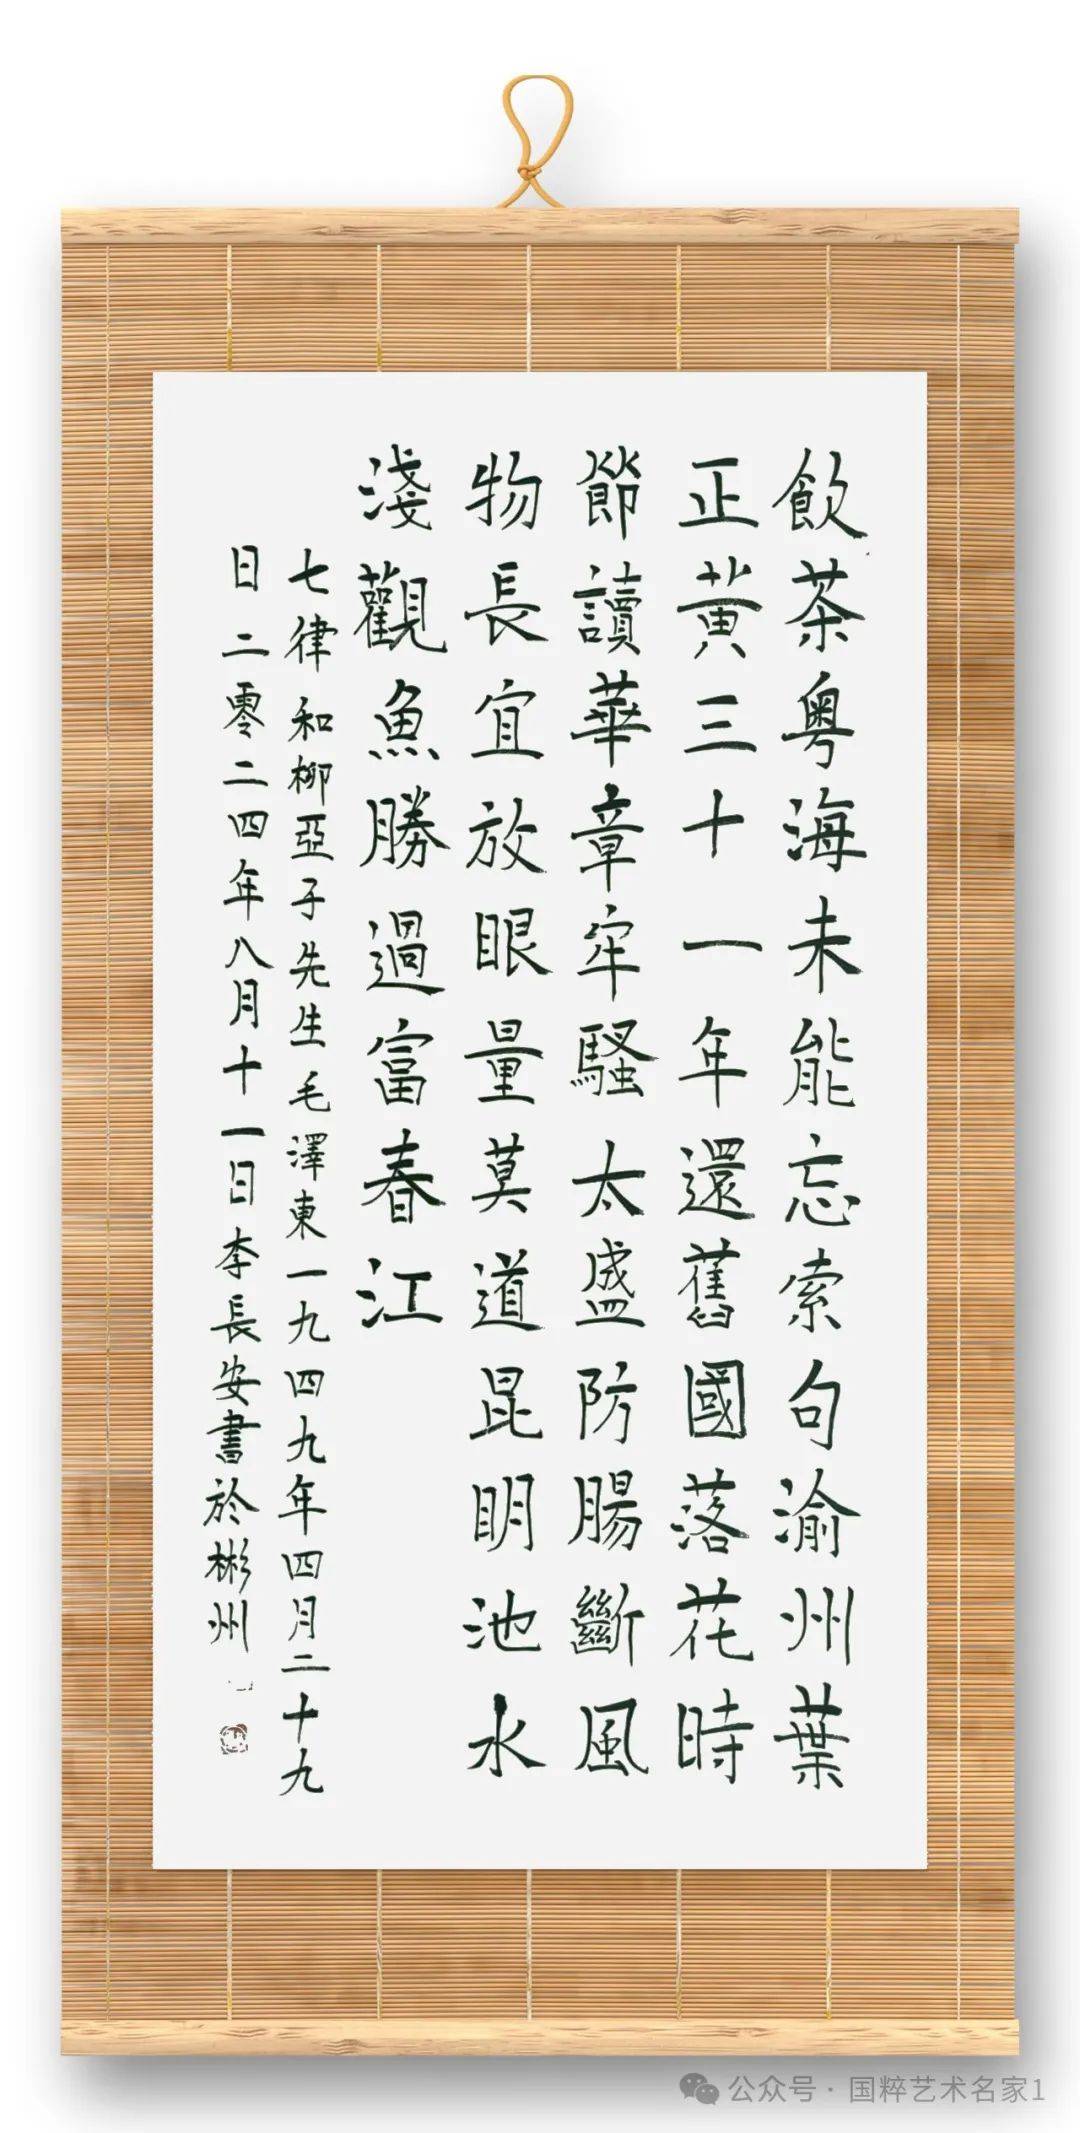 飲茶粵海未能忘索句渝州葉
正黃三十一年還舊國落花時
節讀華章牢騷太盛防腸斷風
物長宜放眼量莫道昆明池水
淺觀魚勝過富春江
七律和柳亞子先生毛澤東一九四九年四月二十九
日 二零二四年八月十一日李長安書於彬州
公众号·国粹艺术名家1